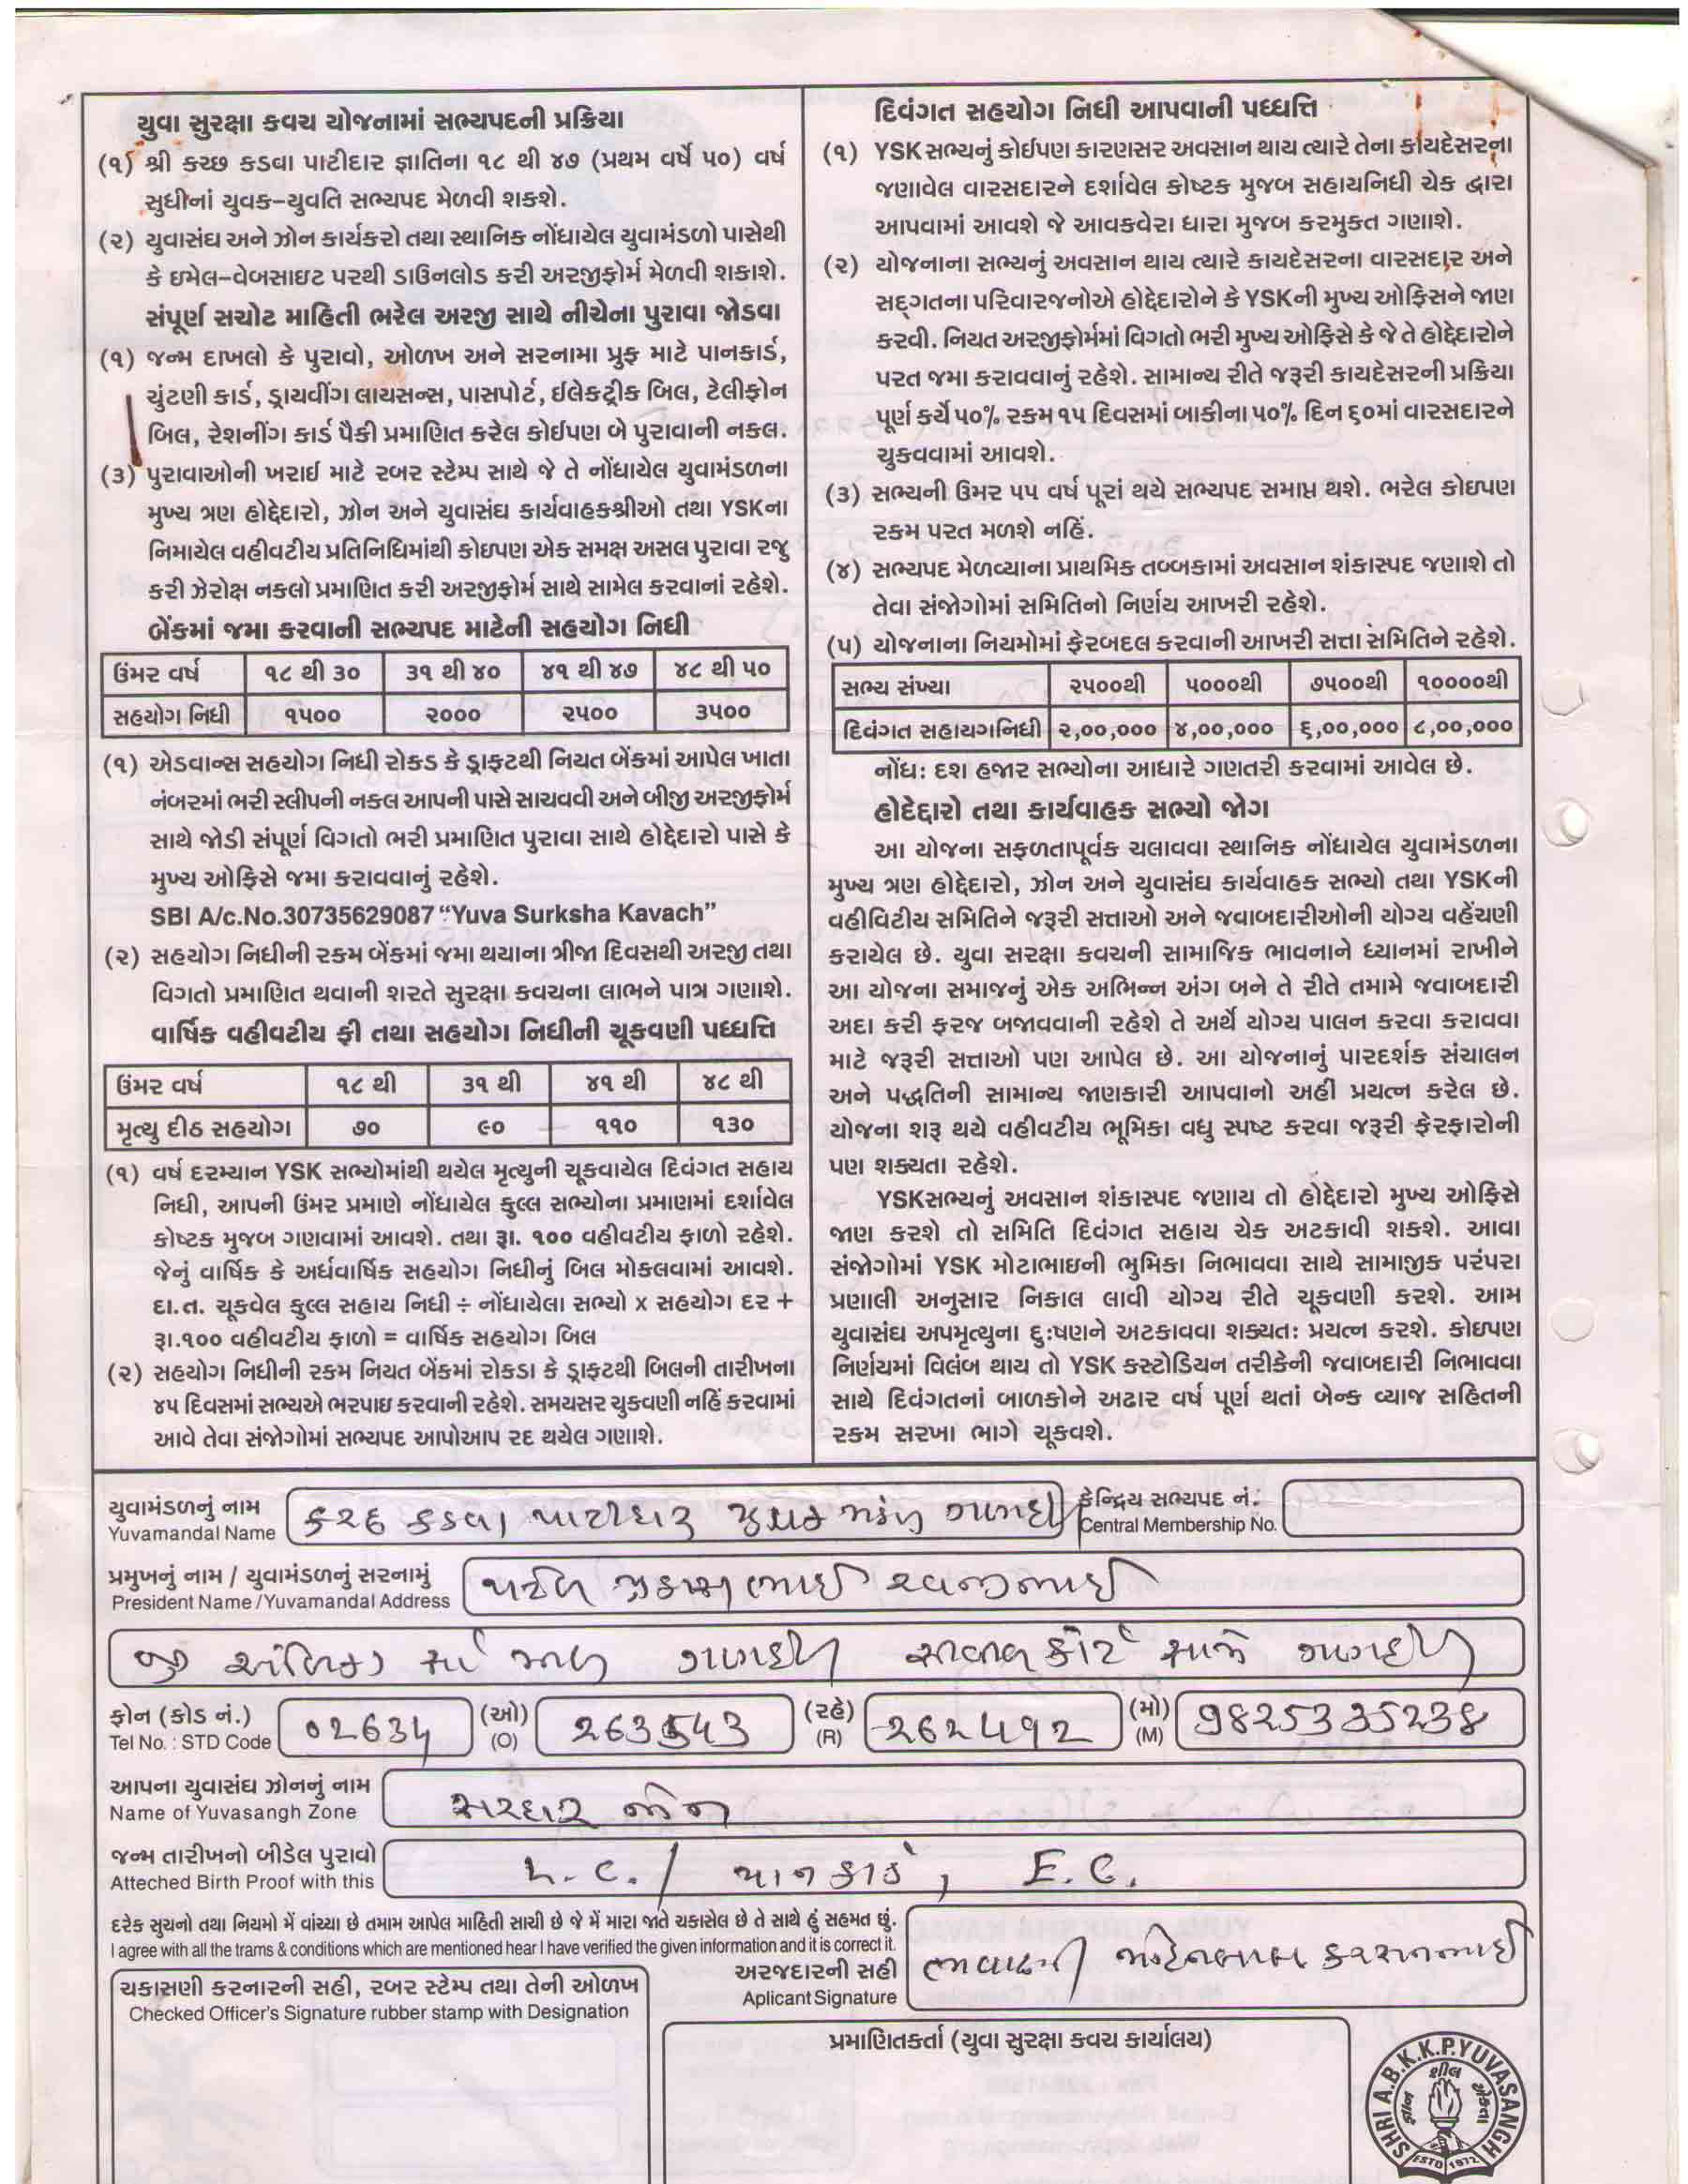 યુવા સુરક્ષા કવચ યોજનામાં સભ્યપદની પ્રક્રિયા
(૧) શ્રી કચ્છ કડવા પાટીદાર જ્ઞાતિના ૧૮ થી ૪૭ (પ્રથમ વર્ષે ૫૦) વર્ષ
સુધીનાં યુવક-યુવતિ સભ્યપદ મેળવી શકશે.
(૨) યુવાસંઘ અને ઝોન કાર્યકરો તથા સ્થાનિક નોંધાયેલ યુવામંડળો પાસેથી
કે ઇમેલ-વેબસાઇટ પરથી ડાઉનલોડ કરી અરજીફોર્મ મેળવી શકાશે.
સંપૂર્ણ સચોટ માહિતી ભરેલ અરજી સાથે નીચેના પુરાવા જોડવા
(૧) જન્મ દાખલો કે પુરાવો, ઓળખ અને સરનામા પ્રુફ માટે પાનકાર્ડ,
ચુંટણી કાર્ડ, ડ્રાયવીંગ લાયસન્સ, પાસપોર્ટ, ઈલેકટ્રીક બિલ, ટેલીફોન
બિલ, રેશનીંગ કાર્ડ પૈકી પ્રમાણિત કરેલ કોઈપણ બે પુરાવાની નકલ.
(૩) પુરાવાઓની ખરાઈ માટે રબર સ્ટેમ્પ સાથે જે તે નોંધાયેલ યુવામંડળના
મુખ્ય ત્રણ હોદ્દેદારો, ઝોન અને યુવાસંઘ કાર્યવાહકશ્રીઓ તથા YSKના
નિમાયેલ વહીવટીય પ્રતિનિધિમાંથી કોઇપણ એક સમક્ષ અસલ પુરાવા રજુ
કરી ઝેરોક્ષ નકલો પ્રમાણિત કરી અરજીફોર્મ સાથે સામેલ કરવાનાં રહેશે.
બેંકમાં જમા કરવાની સભ્યપદ માટેની સહયોગ નિધી
ઉંમર વર્ષ ૧૮ થી ૩૦ ૩૧ થી ૪૦ ૪૧ થી ૪૭ ૪૮ થી ૫૦
સહયોગ નિધી ૧૫૦૦ ૨૦૦૦ ૨૫૦૦ ૩૫૦૦
(૧) એડવાન્સ સહયોગ નિધી રોકડ કે ડ્રાફટથી નિયત બેંકમાં આપેલ ખાતા
નંબરમાં ભરી સ્લીપની નકલ આપની પાસે સાચવવી અને બીજી અરજીફોર્મ
સાથે જોડી સંપૂર્ણ વિગતો ભરી પ્રમાણિત પુરાવા સાથે હોદ્દેદારો પાસે કે
મુખ્ય ઓફિસે જમા કરાવવાનું રહેશે.
SBI A/c.No.30735629087 “Yuva Surksha Kavach”
(૨) સહયોગ નિધીની રકમ બેંકમાં જમા થયાના ત્રીજા દિવસથી અરજી તથા
વિગતો પ્રમાણિત થવાની શરતે સુરક્ષા કવચના લાભને પાત્ર ગણાશે.
વાર્ષિક વહીવટીય ફી તથા સહયોગ નિધીની ચૂકવણી પધ્ધતિ
ઉંમર વર્ષ ૧૮ થી ૩૧ થી ૪૧ થી ૪૮ થી
મૃત્યુ દીઠ સહયોગ ૭૦ ૯૦ ૧૧૦ ૧૩૦
(૧) વર્ષ દરમ્યાન YSK સભ્યોમાંથી થયેલ મૃત્યુની ચૂકવાયેલ દિવંગત સહાય
નિધી, આપની ઉંમર પ્રમાણે નોંધાયેલ કુલ્લ સભ્યોના પ્રમાણમાં દર્શાવેલ
કોષ્ટક મુજબ ગણવામાં આવશે. તથા રૂા. ૧૦૦ વહીવટીય ફાળો રહેશે.
જેનું વાર્ષિક કે અર્ધવાર્ષિક સહયોગ નિધીનું બિલ મોકલવામાં આવશે.
દા.ત. ચૂકવેલ કુલ્લ સહાય નિધી ÷ નોંધાયેલા સભ્યો x સહયોગ દર +
રૂા.૧૦૦ વહીવટીય ફાળો = વાર્ષિક સહયોગ બિલ
(૨) સહયોગ નિધીની રકમ નિયત બેંકમાં રોકડા કે ડ્રાફટથી બિલની તારીખના
૪૫ દિવસમાં સભ્યએ ભરપાઇ કરવાની રહેશે. સમયસર ચુકવણી નહિં કરવામાં
આવે તેવા સંજોગોમાં સભ્યપદ આપોઆપ રદ થયેલ ગણાશે.
દિવંગત સહયોગ નિધી આપવાની પધ્ધત્તિ
(૧) YSK સભ્યનું કોઈપણ કારણસર અવસાન થાય ત્યારે તેના કાયદેસરના
જણાવેલ વારસદારને દર્શાવેલ કોષ્ટક મુજબ સહાયનિધી ચેક દ્વારા
આપવામાં આવશે જે આવકવેરા ધારા મુજબ કરમુકત ગણાશે.
(૨) યોજનાના સભ્યનું અવસાન થાય ત્યારે કાયદેસરના વારસદાર અને
સદ્‌ગતના પરિવારજનોએ હોદ્દેદારોને કે YSKની મુખ્ય ઓફિસને જાણ
કરવી. નિયત અરજીફોર્મમાં વિગતો ભરી મુખ્ય ઓફિસે કે જે તે હોદ્દેદારોને
પરત જમા કરાવવાનું રહેશે. સામાન્ય રીતે જરૂરી કાયદેસરની પ્રક્રિયા
પૂર્ણ કર્યે ૫૦% રકમ ૧૫ દિવસમાં બાકીના ૫૦% દિન ૬૦માં વારસદારને
ચુકવવામાં આવશે.
(૩) સભ્યની ઉમર ૫૫ વર્ષ પૂરાં થયે સભ્યપદ સમાપ્ત થશે. ભરેલ કોઇપણ
રકમ પરત મળશે નહિં.
(૪) સભ્યપદ મેળવ્યાના પ્રાથમિક તબ્બકામાં અવસાન શંકાસ્પદ જણાશે તો
તેવા સંજોગોમાં સમિતિનો નિર્ણય આખરી રહેશે.
(૫) યોજનાના નિયમોમાં ફેરબદલ કરવાની આખરી સત્તા સમિતિને રહેશે.
સભ્ય સંખ્યા ૨૫૦૦થી ૫૦૦૦થી ૭૫૦૦થી ૧૦૦૦૦થી
દિવંગત સહાયગનિધી ૨,૦૦,૦૦૦ ૪,૦૦,૦૦૦ ૬,૦૦,૦૦૦ ૮,૦૦,૦૦૦
નોંધ: દશ હજાર સભ્યોના આધારે ગણતરી કરવામાં આવેલ છે.
હોદેદ્દારો તથા કાર્યવાહક સભ્યો જોગ
આ યોજના સફળતાપૂર્વક ચલાવવા સ્થાનિક નોંધાયેલ યુવામંડળના
મુખ્ય ત્રણ હોદ્દેદારો, ઝોન અને યુવાસંઘ કાર્યવાહક સભ્યો તથા YSKની
વહીવિટીય સમિતિને જરૂરી સત્તાઓ અને જવાબદારીઓની યોગ્ય વહેંચણી
કરાયેલ છે. યુવા સરક્ષા કવચની સામાજિક ભાવનાને ધ્યાનમાં રાખીને
આ યોજના સમાજનું એક અભિન્ન અંગ બને તે રીતે તમામે જવાબદારી
અદા કરી ફરજ બજાવવાની રહેશે તે અર્થે યોગ્ય પાલન કરવા કરાવવા
માટે જરૂરી સત્તાઓ પણ આપેલ છે. આ યોજનાનું પારદર્શક સંચાલન
અને પદ્ધતિની સામાન્ય જાણકારી આપવાનો અહી પ્રયત્ન કરેલ છે.
યોજના શરૂ થયે વહીવટીય ભૂમિકા વધુ સ્પષ્ટ કરવા જરૂરી ફેરફારોની
પણ શક્યતા રહેશે.
YSKસભ્યનું અવસાન શંકાસ્પદ જણાય તો હોદ્દેદારો મુખ્ય ઓફિસે
જાણ કરશે તો સમિતિ દિવંગત સહાય ચેક અટકાવી શકશે. આવા
સંજોગોમાં YSK મોટાભાઇની ભુમિકા નિભાવવા સાથે સામાજીક પરંપરા
પ્રણાલી અનુસાર નિકાલ લાવી યોગ્ય રીતે ચૂકવણી કરશે. આમ
યુવાસંઘ અપમૃત્યુના દુઃષણને અટકાવવા શક્યતઃ પ્રયત્ન કરશે. કોઇપણ
નિર્ણયમાં વિલંબ થાય તો YSK કસ્ટોડિયન તરીકેની જવાબદારી નિભાવવા
સાથે દિવંગતનાં બાળકોને અઢાર વર્ષ પૂર્ણ થતાં બેન્ક વ્યાજ સહિતની
રકમ સરખા ભાગે ચૂકવશે.
યુવામંડળનું નામ કચ્છ કડવા પાટીદાર યુવક મંડળ ગણદેવી કેન્દ્રિય સભ્યપદ નં:
Yuvamandal Name Central Membership No.
પ્રમુખનું નામ / યુવામંડળનું સરનામું પટેલ પ્રકાશભાઈ રવજીભાઈ
President Name /Yuvamandal Address
અંબિકા ગણદેવી સીવીલ કોર્ટ સામે ગણદેવી
ફોન (કોડ નં.) 02634 (ઓ) 263543 (રહે) 262492 (મો) 9825335238
Tel No. : STD Code (O) (R) (M)
આપના યુવાસંઘ ઝોનનું નામ સરદાર ઝોન
Name of Yuvasangh Zone
જન્મ તારીખનો બીડેલ પુરાવો L.C. / પાનકાર્ડ, E.C.
Atteched Birth Proof with this
દરેક સુચનો તથા નિયમો મેં વાંચ્યા છે તમામ આપેલ માહિતી સાચી છે જે મેં મારા જાતે ચકાસેલ છે તે સાથે હું સહમત છું.
I agree with all the trams & conditions which are mentioned hear I have verified the given information and it is correct it.
અરજદારની સહી કરસનભાઈ
Aplicant Signature
ચકાસણી કરનારની સહી, રબર સ્ટેમ્પ તથા તેની ઓળખ
Checked Officer's Signature rubber stamp with Designation
પ્રમાણિતકર્તા (યુવા સુરક્ષા કવચ કાર્યાલય)
SHRI A.B.K.K.P.YUVASANGH
શીલ
જ્ઞાન
એકતા
ESTD 1972